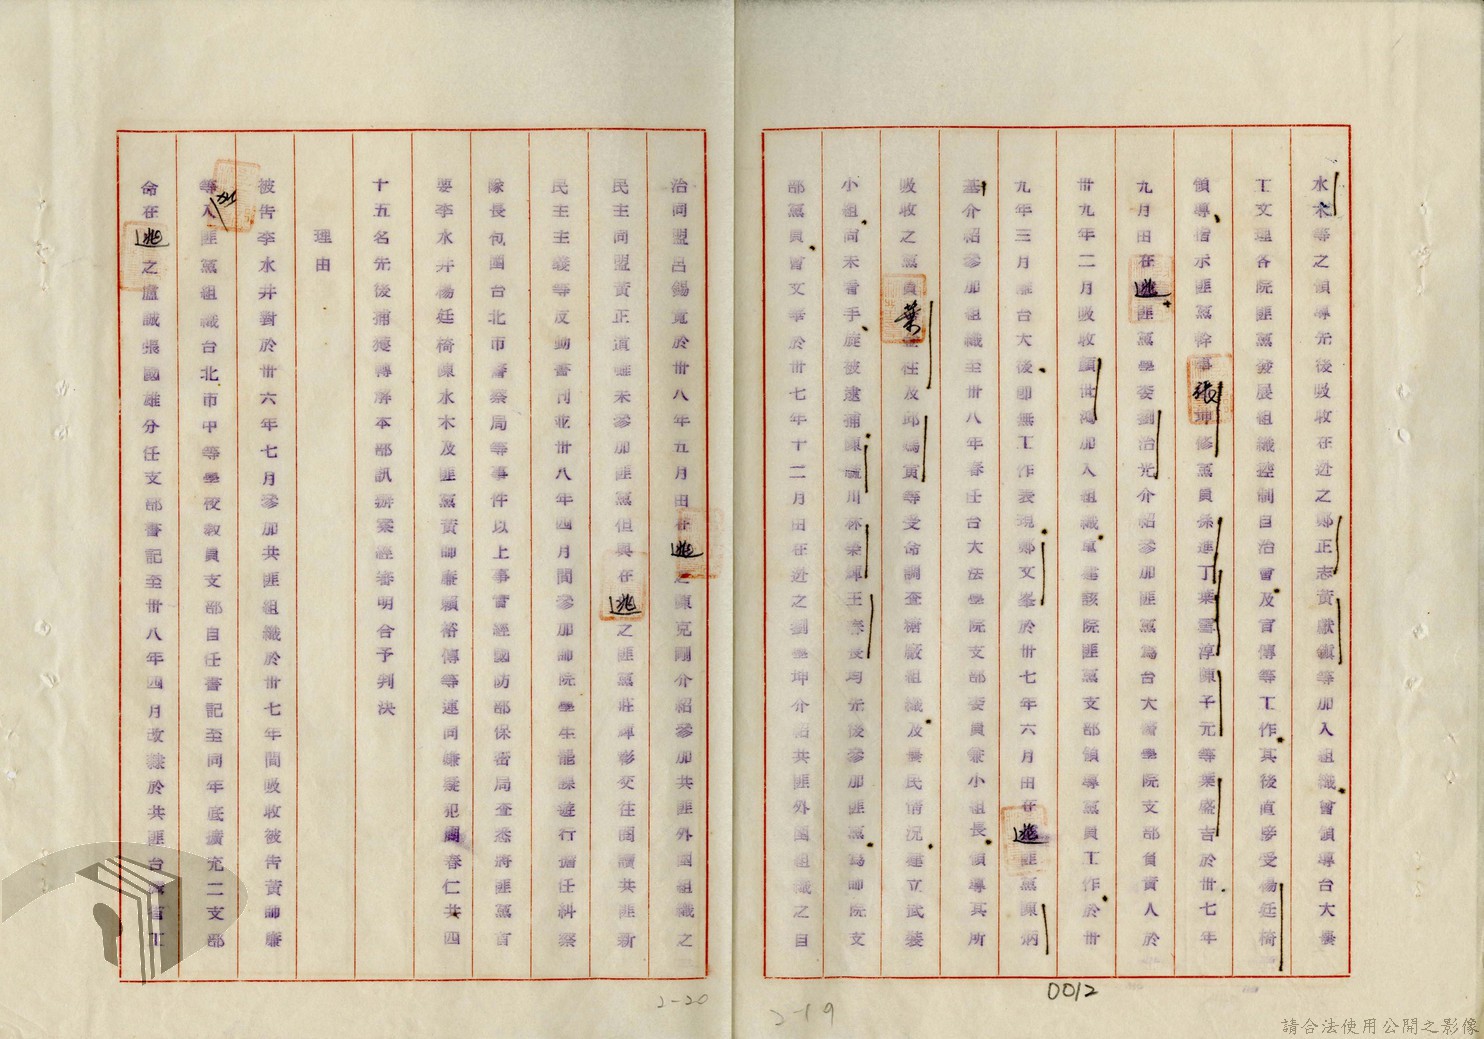 水木等之領導先後吸收在逃之鄭正志黃獻鎮等加入組織會領導台大農
工文理各院匪黨發展組織控制自治會及宣傳等工作其後直隸受楊廷椅
領導指示匪黨幹事張坤修黨員孫進丁葉雪淳陳子元等葉盛吉於卅七年
九月由在逃匪黨學委劉治光介紹參加匪黨為台大醫學院支部負責人於
卅九年二月吸收顏世鴻加入組織並建該院匪黨支部領導黨員工作於卅
九年三月離台大後即無工作表現鄭文峯於卅七年六月由在逃匪黨陳炳
基介紹參加組織至卅八年春任台大法學院支部委員兼小組長領導其所
吸收之黨員葉金柱及邱媽寅等受命調查糖廠組織及農民情況建立武裝
小組尚未着手旋被逮捕陳水川林榮輝王春長均先後參加匪黨為師院支
部黨員曾文華於卅七年十二月由在逃之劉學坤介紹共匪外圍組織之自
治同盟呂錫寬於卅八年五月由在逃之陳克剛介紹參加共匪外圍組織之
民主同盟黃正道雖未參加匪黨但與在逃之匪黨莊輝彰交往閱讀共匪新
民主主義等反動書刊並卅八年四月間參加師院學生龍課遊行擔任糾察
隊長包圍台北市警察局等事件以上事實經國防部保密局查悉將匪黨首
要李水井楊廷椅陳水木及匪黨黃師廉顧裕傳等連同嫌疑犯閻春仁共四
十五名先後捕獲轉解本部訊辦案經審明合予判決
理由
被告李水井對於卅六年七月參加共匪組織於卅七年間吸收被告黃師廉
等入匪黨組織台北市中等學校教員支部自任書記至同年底擴充二支部
命在逃之盧誠張國雄分任支部書記至卅八年四月改隸於共匪台灣省工
2-20
2-19
0012
請合法使用公開之影像